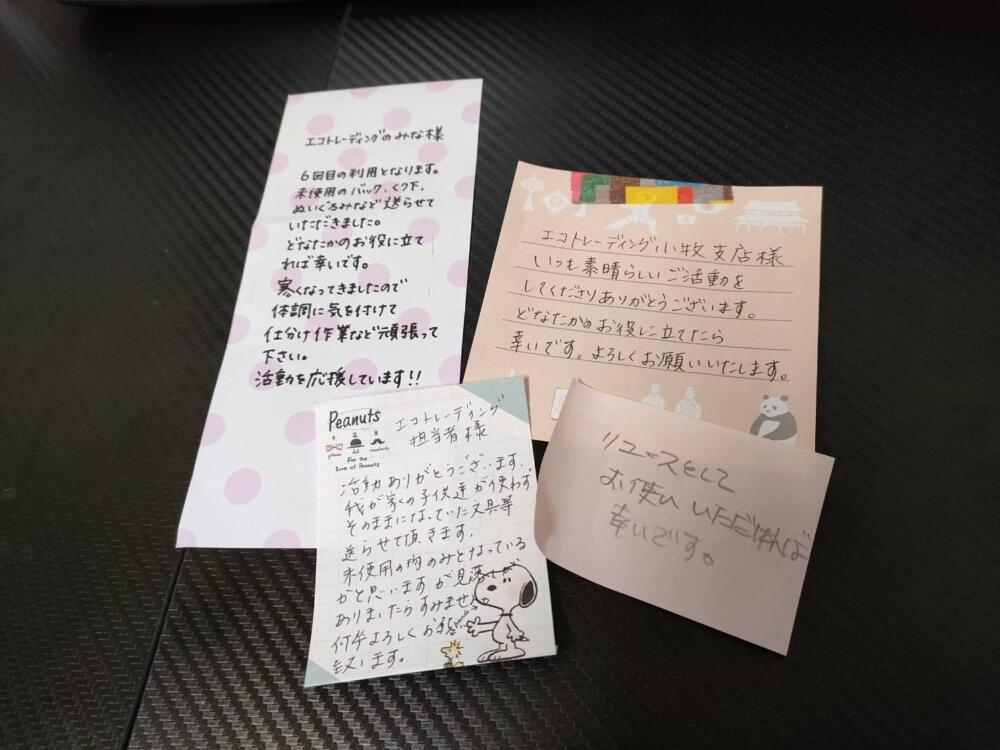 エコトレーディングのみな様
6回目の利用となります。
未使用のバック、くつ下、
ぬいぐるみなど送らせて
いただきました。
どなたかのお役に立て
れば幸いです。
寒くなってきましたので
体調に気を付けて
仕分け作業など頑張って
下さい。
活動を応援しています!!
エコトレーディング小牧支店様
いつも素晴らしいご活動を
してくださりありがとうございます。
どなたかのお役に立てたら
幸いです。よろしくお願いいたします。
Peanuts
1 2 3
For the
Love of Peanuts
エコトレーディング
担当者様
活動ありがとうございます。
我が家の子供達が使わず
そのままになっていた文具等
送らせて頂きます。
未使用の物のみとなっている
かと思いますが見落しが
ありましたらすみません。
何卒よろしくお願い
致します。
リユースとして
お使いいただければ
幸いです。